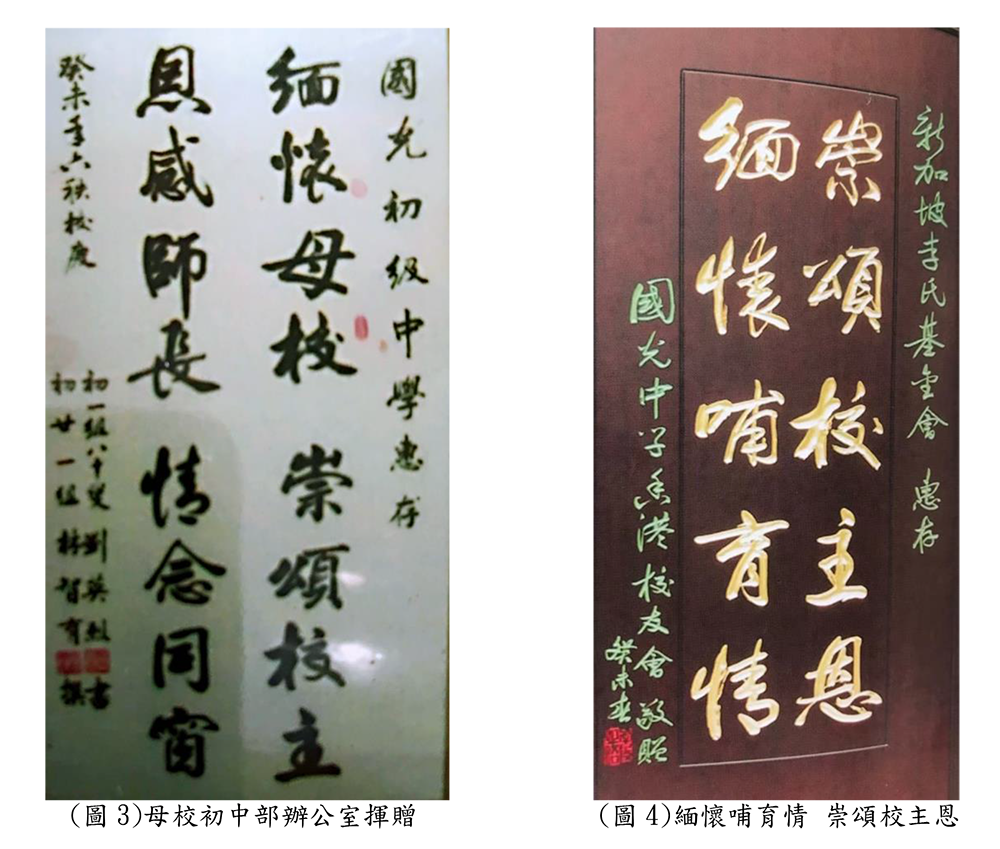 國光初級中學惠存
緬懷母校 崇頌校主
恩感師長 情念同窗
癸未年六秩校慶
初一組八十叟 劉英烈 書
初廿一組 林智育 撰
(圖3)母校初中部辦公室揮贈
新加坡李氏基金會 惠存
崇頌校主恩
緬懷哺育情
國光中学香港校友會敬贈
癸未春
(圖4)緬懷哺育情 崇頌校主恩